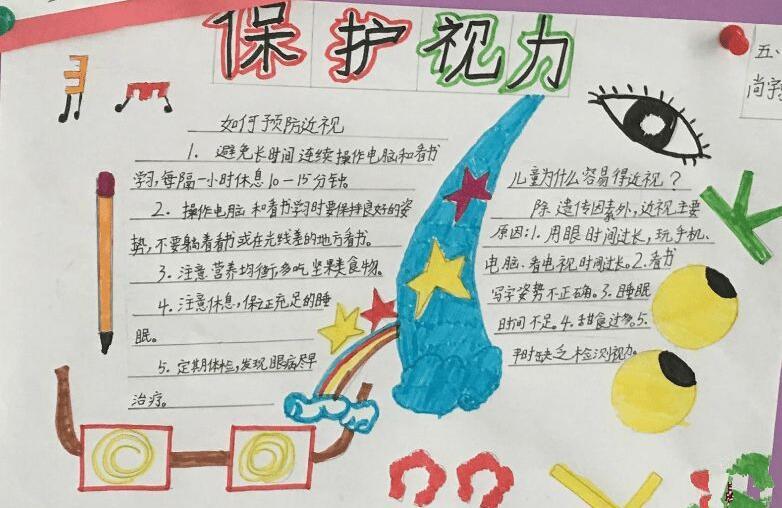 保护视力
五、
尚宇
如何预防近视
1. 避免长时间连续操作电脑和看书
学习,每隔一小时休息10-15分钟。
2. 操作电脑和看书学习时要保持良好的姿
势,不要躺着看书或在光线差的地方看书。
3. 注意营养均衡,多吃坚果类食物。
4. 注意休息,保证充足的睡
眠。
5. 定期体检,发现眼病尽早
治疗。
儿童为什么容易得近视?
除遗传因素外,近视主要
原因:1.用眼时间过长,玩手机、
电脑、看电视时间过长。2.看书
写字姿势不正确。3.睡眠
时间不足。4.甜食过多。5.
平时缺乏检测视力。